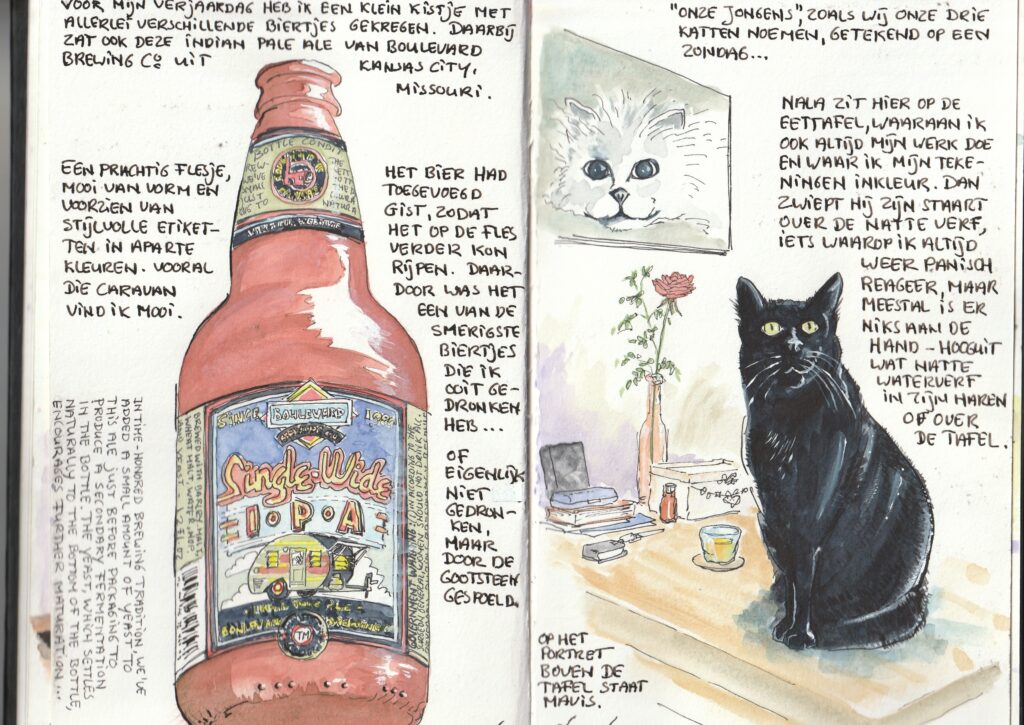 VOOR MIJN VERJAARDAG HEB IK EEN KLEIN KISTJE MET
ALLERLEI VERSCHILLENDE BIERTJES GEKREGEN. DAARBIJ
ZAT OOK DEZE INDIAN PALE ALE VAN BOULEVARD
BREWING Co UIT
KANSAS CITY,
MISSOURI.
EEN PRACHTIG FLESJE,
MOOI VAN VORM EN
VOORZIEN VAN
STIJLVOLLE ETIKET-
TEN IN APARTE
KLEUREN. VOORAL
DIE CARAVAN
VIND IK MOOI.
HET BIER HAD
TOEGEVOEGD
GIST, ZODAT
HET OP DE FLES
VERDER KON
RIJPEN. DAAR-
DOOR WAS HET
EEN VAN DE
SMERIGSTE
BIERTJES
DIE IK
OOIT GE-
DRONKEN
HEB...
OF
EIGENLIJK
NIET
GEDRON-
KEN,
MAAR
DOOR DE
GOOTSTEEN
GESPOELD.
BOTTLE CONDI
SINCE BOULEVARD 1989
Single-Wide
I·P·A
TM
IN TIME-HONORED BREWING TRADITION WE'VE
ADDED A SMALL AMOUNT OF YEAST TO
THIS ALE JUST BEFORE PACKAGING TO
PRODUCE A SECONDARY FERMENTATION
IN THE BOTTLE. THE YEAST, WHICH SETTLES
NATURALLY TO THE BOTTOM OF THE BOTTLE,
ENCOURAGES FURTHER MATURATION...
"ONZE JONGENS", ZOALS WIJ ONZE DRIE
KATTEN NOEMEN, GETEKEND OP EEN
ZONDAG...
NALA ZIT HIER OP DE
EETTAFEL, WAARAAN IK
OOK ALTIJD MIJN WERK DOE
EN WAAR IK MIJN TEKE-
NINGEN INKLEUR. DAN
ZWIEPT HIJ ZIJN STAART
OVER DE NATTE VERF,
IETS WAAROP IK ALTIJD
WEER PANISCH
REAGEER, MAAR
MEESTAL IS ER
NIKS AAN DE
HAND - HOOGUIT
WAT NATTE
WATERVERF
IN ZIJN HAREN
OF OVER
DE TAFEL.
OP HET
PORTRET
BOVEN DE
TAFEL STAAT
MAVIS.